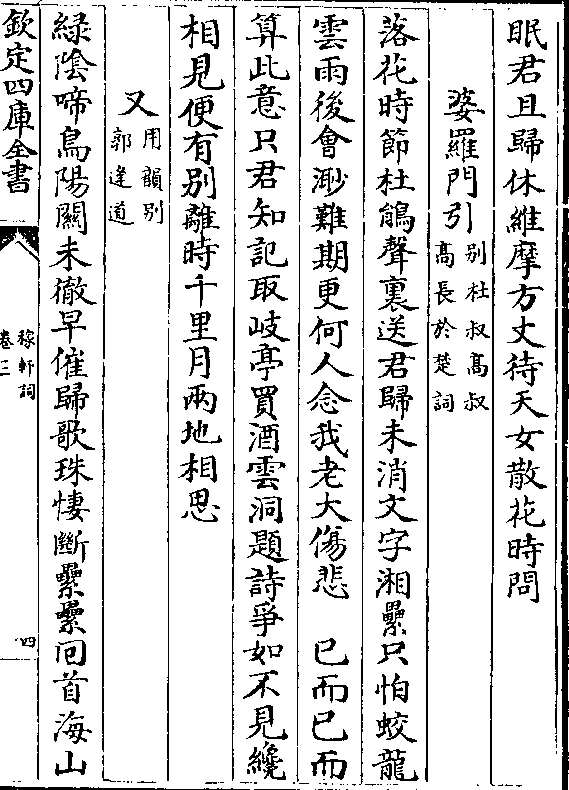 眠君且歸休維摩方丈待天女散花時問
婆羅門引别杜叔髙叔髙長於楚詞
落花時節杜鵑聲裏送君歸未消文字湘纍只怕蛟龍
雲雨後會渺難期更何人念我老大傷悲　已而已而
算此意只君知記取岐亭買酒雲洞題詩爭如不見纔
相見便有别離時千里月兩地相思
又用韻别郭逢道
緑陰啼鳥陽關未徹早催歸歌珠悽斷纍纍囘首海山
欽定四庫全書
稼軒詞
卷三
四